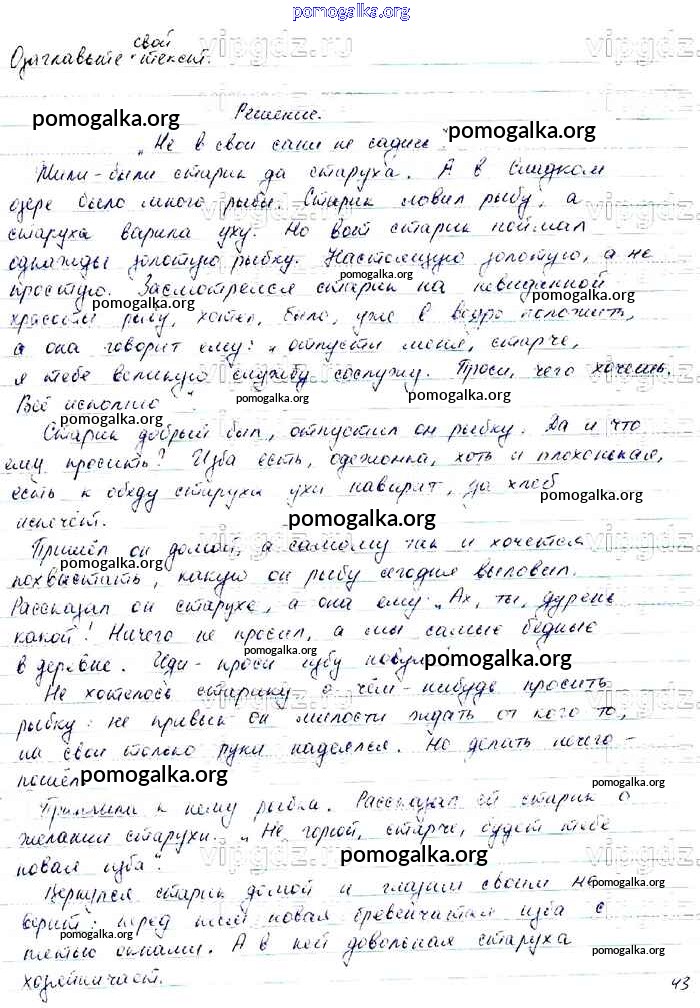 pomogalka.org
свой
Озаглавьте текст.
vipgdz.ru
Решение.
pomogalka.org
pomogalka.org
"Не в свои сани не садись"
Жили-были старик да старуха. А в
озере было много рыбы. Старик ловил рыбу, а
pomogalka.org
старуха варила уху. Но вот старик поймал
однажды золотую рыбку. Настоящую золотую, а не
pomogalka.org
простую. Засмотрелся старик на невиданной
pomogalka.org
pomogalka.org
красоты рыбу, хотел, было, уже в ведро положить,
а она говорит ему: "отпусти меня, старче,
pomogalka.org
я тебе великую службу сослужу. Проси, чего хочешь.
Всё исполню"
pomogalka.org
pomogalka.org
pomogalka.org
Старик добрый был, отпустил он рыбку. Да и что
ему просить? Изба есть, одежонка, хоть и плохонькая,
есть к обеду старуха ухи наварит, да хлеб
pomogalka.org
испечёт.
pomogalka.org
Пришёл он домой, а самому так и хочется
pomogalka.org
похвастать, какую он рыбу сегодня выловил.
pomogalka.org
Рассказал он старухе, а она ему: "Ах, ты, дурень
pomogalka.org
какой! Ничего не просил, а мы самые бедные
в деревне. Иди-проси избу новую"
pomogalka.org
pomogalka.org
Не хотелось старику о чём-нибудь просить
pomogalka.org
рыбку: не привык он милости ждать от кого то,
на свои только руки надеялся. Но делать нечего -
пошёл
pomogalka.org
pomogalka.org
Приплыла к нему рыбка. Рассказал ей старик о
желании старухи. "Не горюй, старче, будет тебе
новая изба".
pomogalka.org
Вернулся старик домой и глазам своим не
pomogalka.org
верит: перед ним новая бревенчатая изба с
pomogalka.org
пятью окнами. А в ней довольная старуха
pomogalka.org
хозяйничает.
43